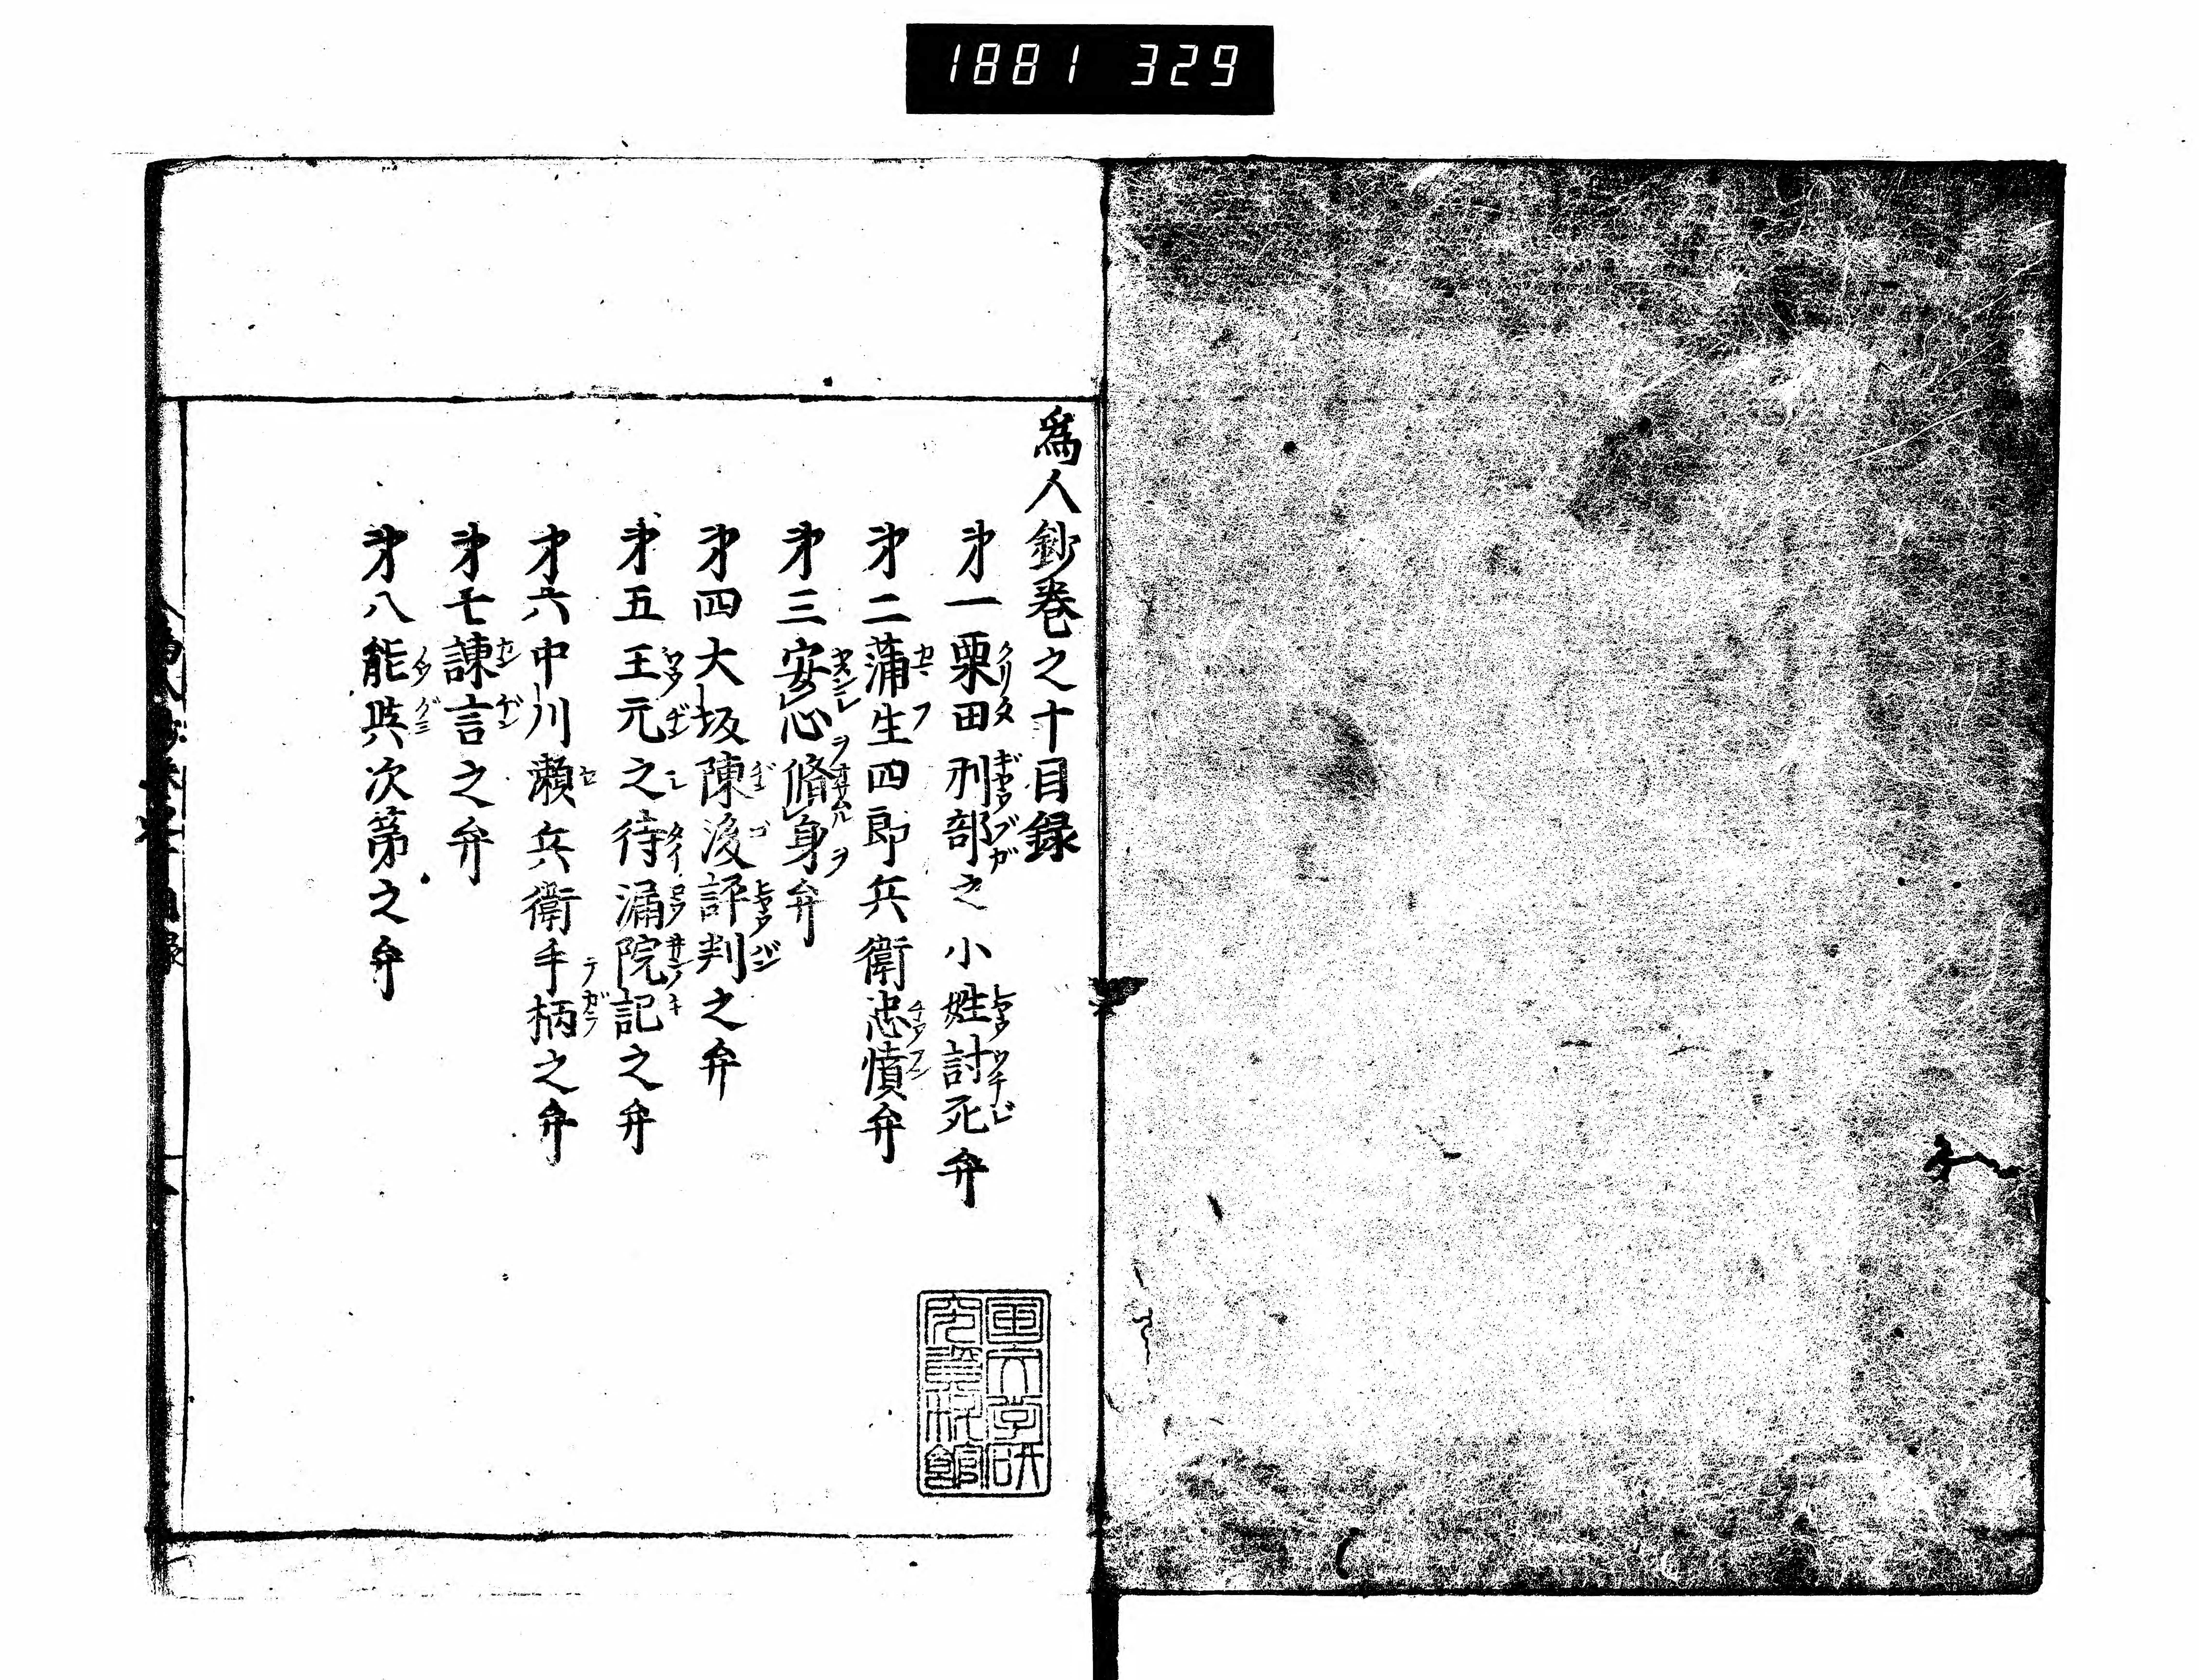 1881 329
爲人鈔巻之十目録
㐧一栗田刑部之小姓討死弁
㐧二蒲生四郎兵衛忠憤弁
㐧三安心脩身弁
㐧四大坂陳後評判之弁
㐧五王元之待漏院記之弁
㐧六中川瀬兵衛手柄之弁
㐧七諌言之弁
㐧八能與次第之弁
国文学研
究資料館